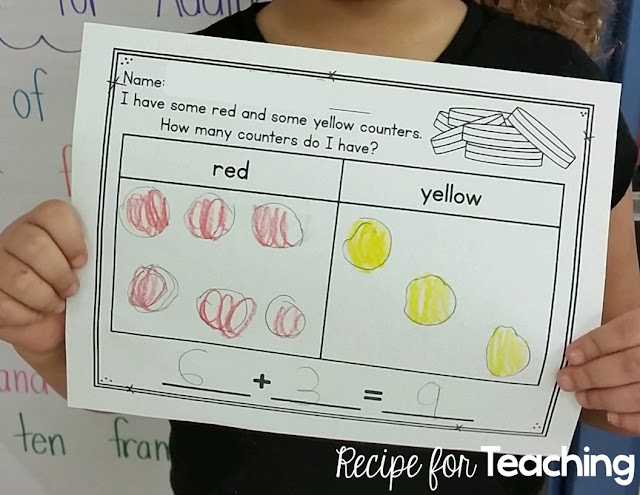 for Addin
of
and
ten fran
Name:
I have some red and some yellow counters.
How many counters do I have?
red yellow
6 + 3 = 9
Recipe for Teaching